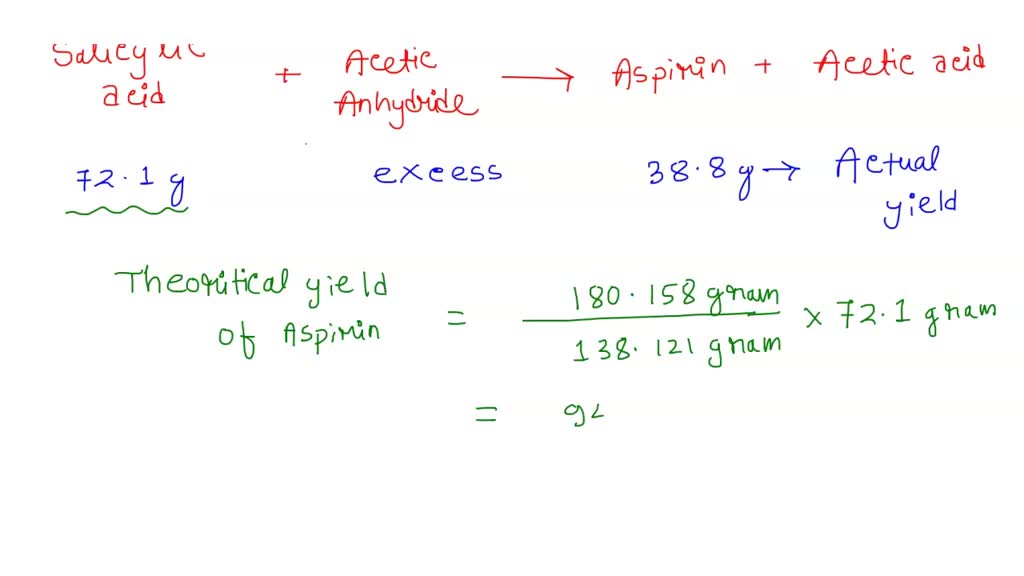 Salicylic acid + Acetic Anhydride → Aspirin + Acetic acid
72.1 g excess 38.8 g → Actual yield
Theoritical yield of Aspirin = 180.158 gram / 138.121 gram × 72.1 gram
= 94